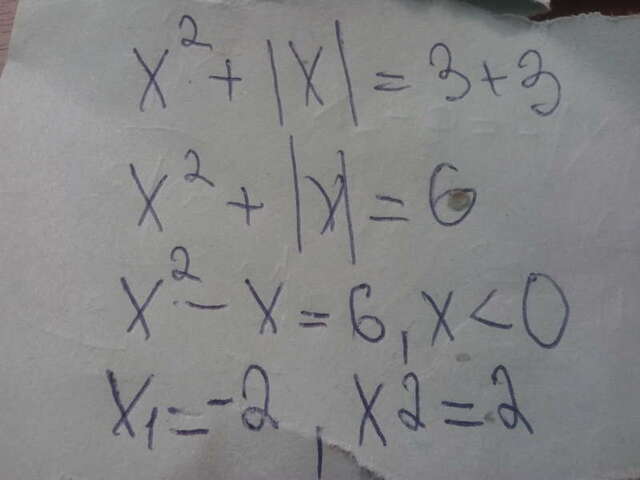 x² + |x| = 3 + 3
x² + |x| = 6
x² - x = 6, x < 0
x₁ = -2, x2 = 2